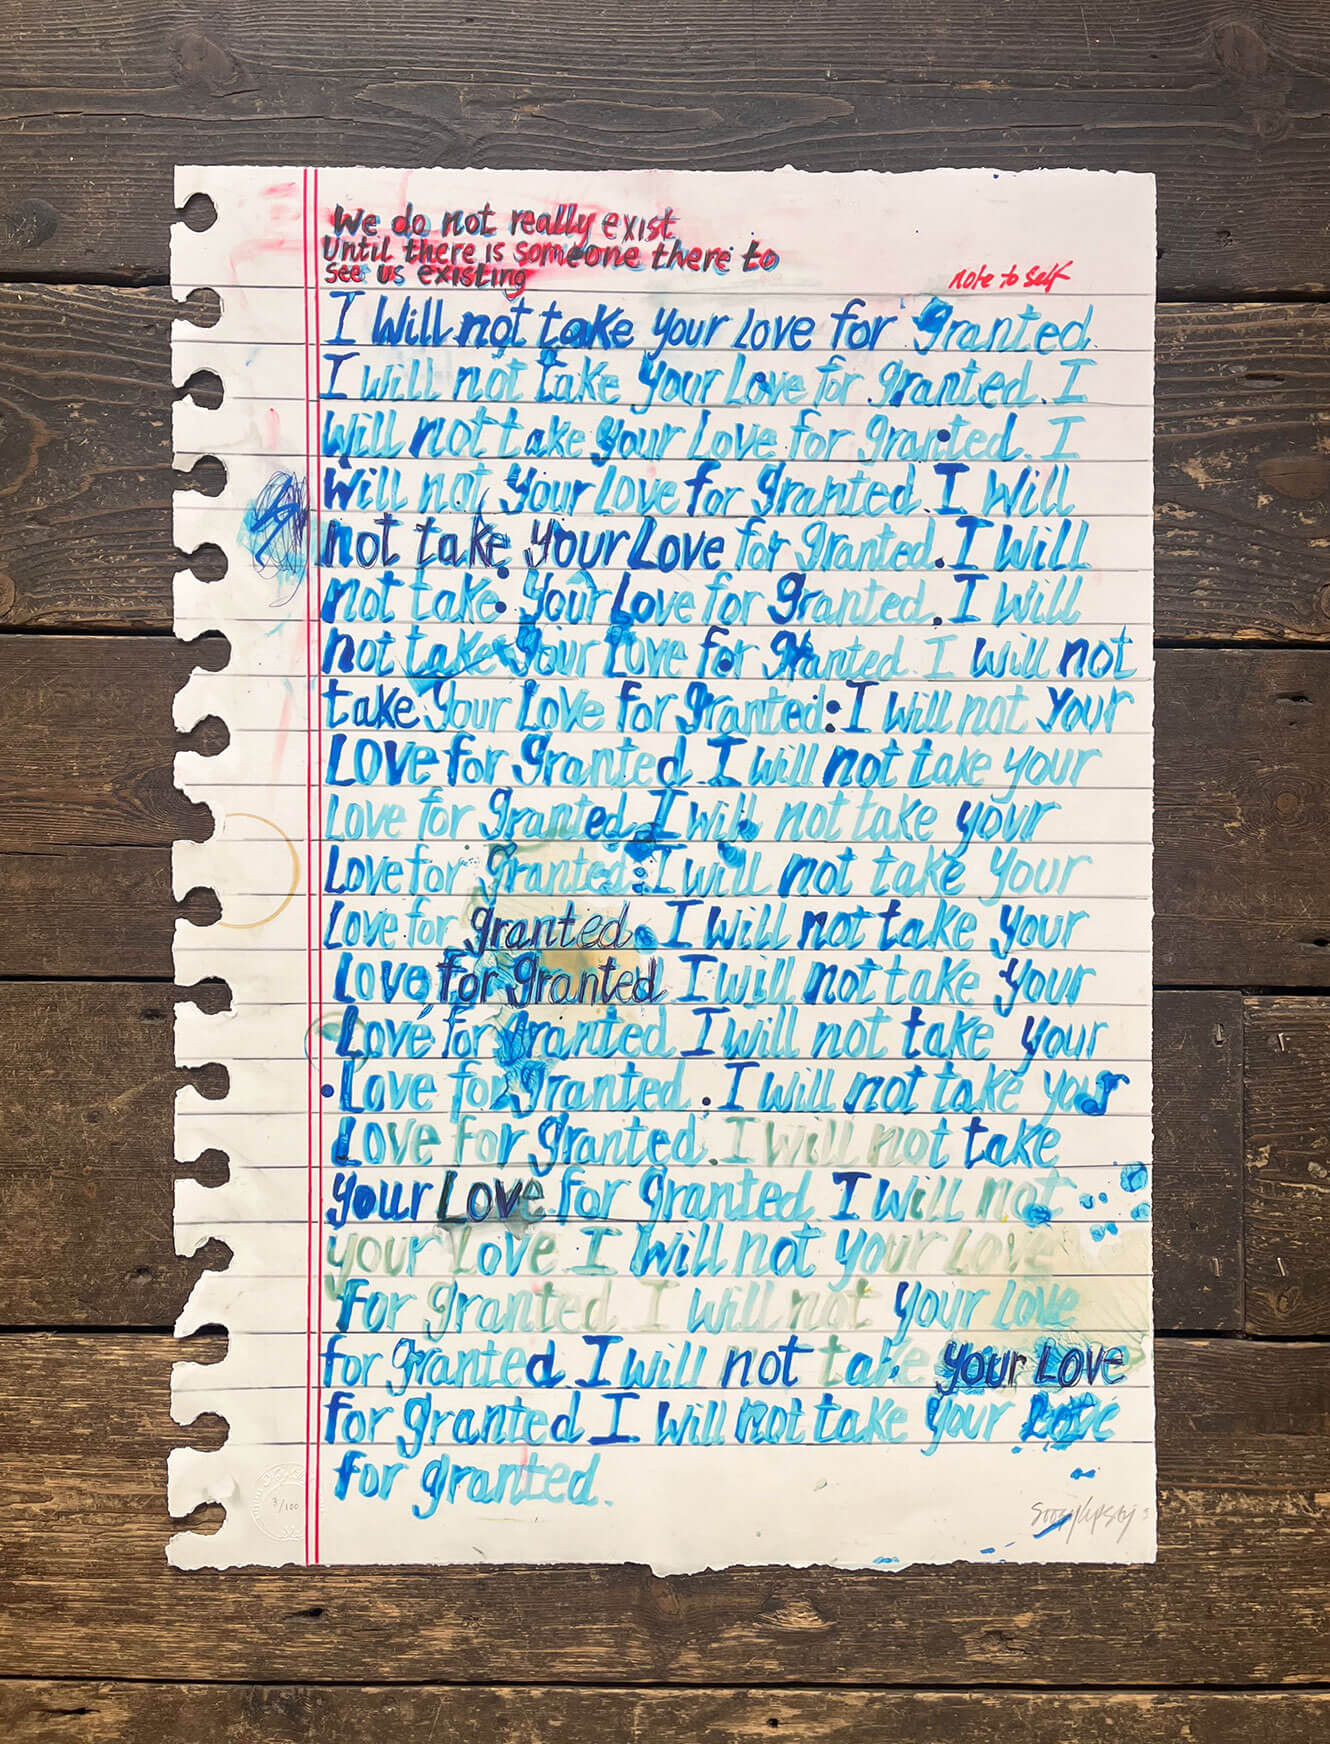 We do not really exist
Until there is someone there to
See us existing
note to self
I Will not take your Love for granted.
I will not take your Love for granted. I
Will not take your Love for granted. I
Will not your Love for granted. I Will
not take your Love for granted. I Will
not take. your Love for granted. I Will
not take your Love for granted. I will not
take your Love for granted: I will not your
Love for granted. I will not take your
Love for granted. I will not take your
Love for granted: I will not take your
Love for granted. I will not take your
Love for granted I will not take your
Love for granted I will not take your
Love for granted. I will not take your
Love for granted. I will not take
your Love for granted. I will not
your Love I will not your Love
For granted I will not your Love
for granted. I will not take your Love
for granted I will not take your Love
for granted.
3/100